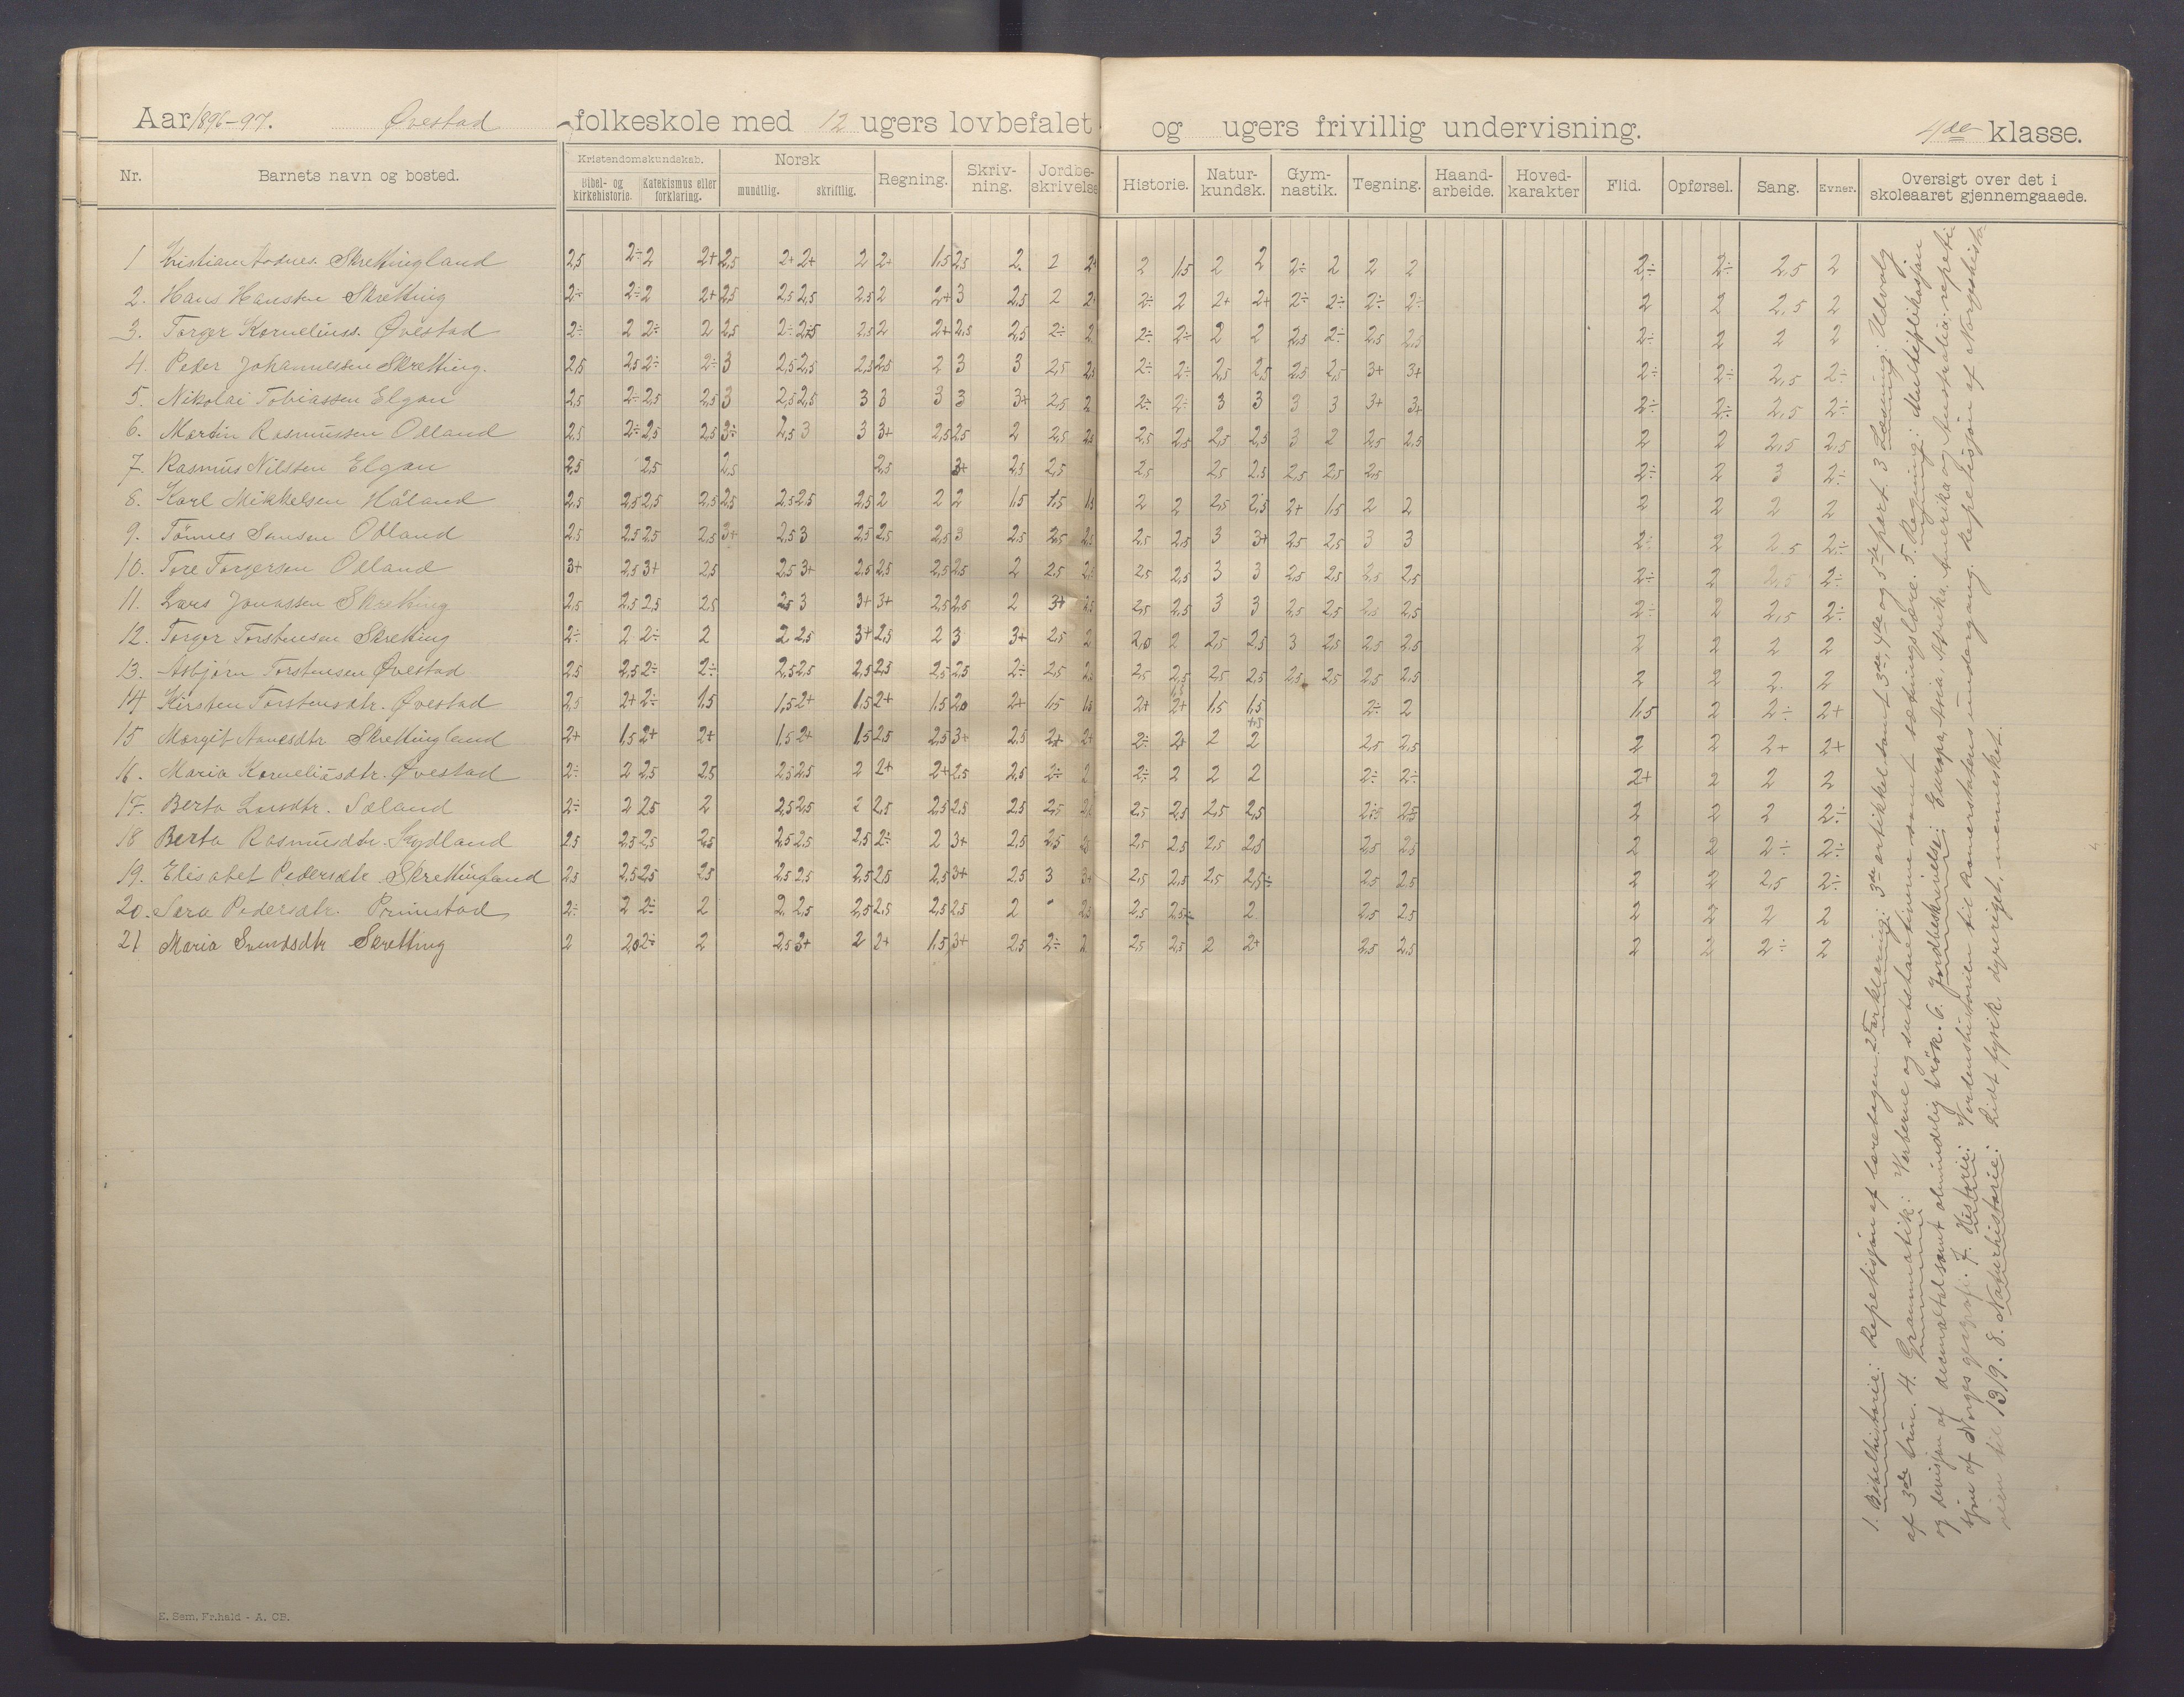 Aar 1896-97. Øvestad folkeskole med 12 ugers lovbefalet og ugers frivillig undervisning. 4de klasse.
Nr. Barnets navn og bosted. Kristendomskundskab. Bibel- og kirkehistorie. Katekismus eller forklaring. Norsk mundtlig. skriftlig. Regning. Skriv-ning. Jordbe-skrivelse Historie. Natur-kundsk. Gym-nastik. Tegning. Haand-arbeide. Hoved-karakter Flid. Opførsel. Sang. Evner. Oversigt over det i skoleaaret gjennemgaaede.
1 Kristian Skrettingland 2,5 2÷ 2 2+ 2,5 2+ 2+ 2 2+ 1,5 2,5 2. 2 2+ 2 1,5 2 2 2÷ 2 2 2 2÷ 2÷ 2,5 2
2. Hans Hansten Skretting 2÷ 2÷ 2 2+ 2,5 2,5 2,5 2,5 2 2+ 3 2,5 2 2+ 2÷ 2 2+ 2+ 2÷ 2÷ 2÷ 2÷ 2 2 2,5 2
3. Torger Korneliuss. Øvestad 2÷ 2 2÷ 2 2,5 2÷ 2,5 2,5 2 2+ 2,5 2,5 2÷ 2 2÷ 2÷ 2 2 2,5 2÷ 2,5 2,5 2÷ 2 2 2
4. Peder Johannessen Skretting. 2,5 2,5 2÷ 2÷ 3 2,5 2,5 2,5 2,5 2 3 3 2,5 2,5 2÷ 2÷ 2,5 2,5 2,5 2,5 3+ 3+ 2÷ 2÷ 2,5 2÷
5. Nikolai Tobiassen Elgan 2,5 2÷ 2,5 2,5 3 2,5 2,5 3 3 3 3 3+ 2,5 2 2÷ 2÷ 3 3 3 3 3+ 3+ 2÷ 2÷ 2,5 2÷
6. Martin Rasmussen Odland 2,5 2÷ 2,5 2,5 3÷ 2,5 3 3 3+ 2,5 2,5 2 2,5 2,5 2,5 2,5 2,5 2,5 3 2 2,5 2,5 2 2 2,5 2,5
7. Rasmus Nilsten Elgan 2,5 2,5 2,5 2,5 3+ 2,5 2,5 2,5 2,5 2,5 2,5 2,5 2,5 2÷ 2 3 2÷
8. Karl Mikkelsen Håland 2,5 2,5 2,5 2,5 2,5 2,5 2,5 2,5 2 2 2 1,5 1,5 1,5 2 2 2,5 2,5 2+ 1,5 2 2 2 2 2 2
9. Tönnes Odland 2,5 2,5 2,5 2,5 3+ 2,5 3 2,5 2,5 2,5 3 2,5 2,5 2,5 2,5 2,5 3 3+ 2,5 2,5 3 3 2÷ 2 2,5 2÷
10. Tore Torgersen Odland 3+ 2,5 3+ 2,5 2,5 3+ 2,5 2,5 2,5 2,5 2 2,5 2,5 2,5 2,5 3 3 2,5 2,5 2,5 2,5 2÷ 2 2,5 2÷
11. Lars Jonassen Skretting 2,5 2,5 2,5 2,5 2,5 3 3+ 3+ 2,5 2,5 2 3+ 2,5 2,5 2,5 3 3 2,5 2,5 2,5 2,5 2÷ 2 2,5 2÷
12. Torger Torstensen Skretting 2÷ 2 2÷ 2 2 2,5 3+ 2,5 2 3 3+ 2,5 2 2,0 2 2,5 2,5 3 2,5 2,5 2,5 2 2 2 2
13. Asbjørn Torstensen Øvestad 2,5 2,5 2÷ 2÷ 2,5 2,5 2,5 2,5 2,5 2,5 2÷ 2,5 2,5 2,5 2,5 2,5 2,5 2,5 2,5 2,5 2,5 2 2 2. 2
14 Kirsten Torstensdtr. Øvestad 2,5 2+ 2÷ 1,5 1,5 2+ 1,5 2+ 1,5 2,0 2+ 1,5 1,5 2+ 2+ 1,5 1,5 2÷ 2 1,5 2 2÷ 2+
15 Margit Skrettingland 2+ 1,5 2+ 2+ 1,5 2+ 1,5 2,5 2,5 3+ 2,5 2+ 2+ 2÷ 2+ 2 2 2,5 2,5 2 2 2+ 2+
16. Maria Korneliusdtr. Øvestad 2÷ 2 2,5 2,5 2,5 2,5 2 2+ 2+ 2,5 2,5 2÷ 2 2÷ 2 2 2 2÷ 2÷ 2+ 2 2 2
17. Berta Sæland 2÷ 2 2,5 2 2,5 2,5 2 2,5 2,5 2,5 2,5 2,5 2,5 2,5 2,5 2,5 2,5 2 2 2 2÷
18 Berta Rasmusdtr. 2,5 2,5 2,5 2,5 2,5 2,5 2,5 2÷ 2 3+ 2,5 2,5 2,5 2,5 2,5 2,5 2,5 2,5 2,5 2 2 2÷ 2÷
19. Elisabet Pedersdtr. Skrettingland 2,5 2,5 2,5 2,5 2,5 2,5 2,5 2,5 2,5 3+ 2,5 3 3+ 2,5 2,5 2,5 2,5÷ 2,5 2,5 2 2 2,5 2÷
20. Sara Pedersdtr. Primstad 2÷ 2 2÷ 2 2 2,5 2,5 2,5 2,5 2,5 2 2,5 2,5 2,5 2 2,5 2,5 2 2 2 2
21 Maria Svendsdtr Skretting 2 2,0 2÷ 2 2,5 3+ 2 2+ 1,5 3+ 2,5 2÷ 2 2,5 2,5 2 2+ 2,5 2,5 2 2 2÷ 2
1. Bibelhistorie: Repetisjon af lævebogen. 2 Forklaring: 3de artikkel samt 3die, 4de og 5te part. 3 Læsning: Udvalg
af 3de trin. 4. Grammatik: Verberne og substantiverne samt sætningslære. 5. Regning: Multiplikasjon
og divisjon af desimaltal samt almindelig brök. 6. Jordbeskrivelse: Europa, Asia, Afrika, Amerika og Australia; repeti-
sjon af Norges geografi. 7. Historie: Verdenshistorien til romerstatens undergang. Repetisjon af Norgeshisto-
rien til 1319. 8. Naturhistorie: Lidt fysik, dyreriget, mennesket.
E. Sem, Fr.hald - A. CB.